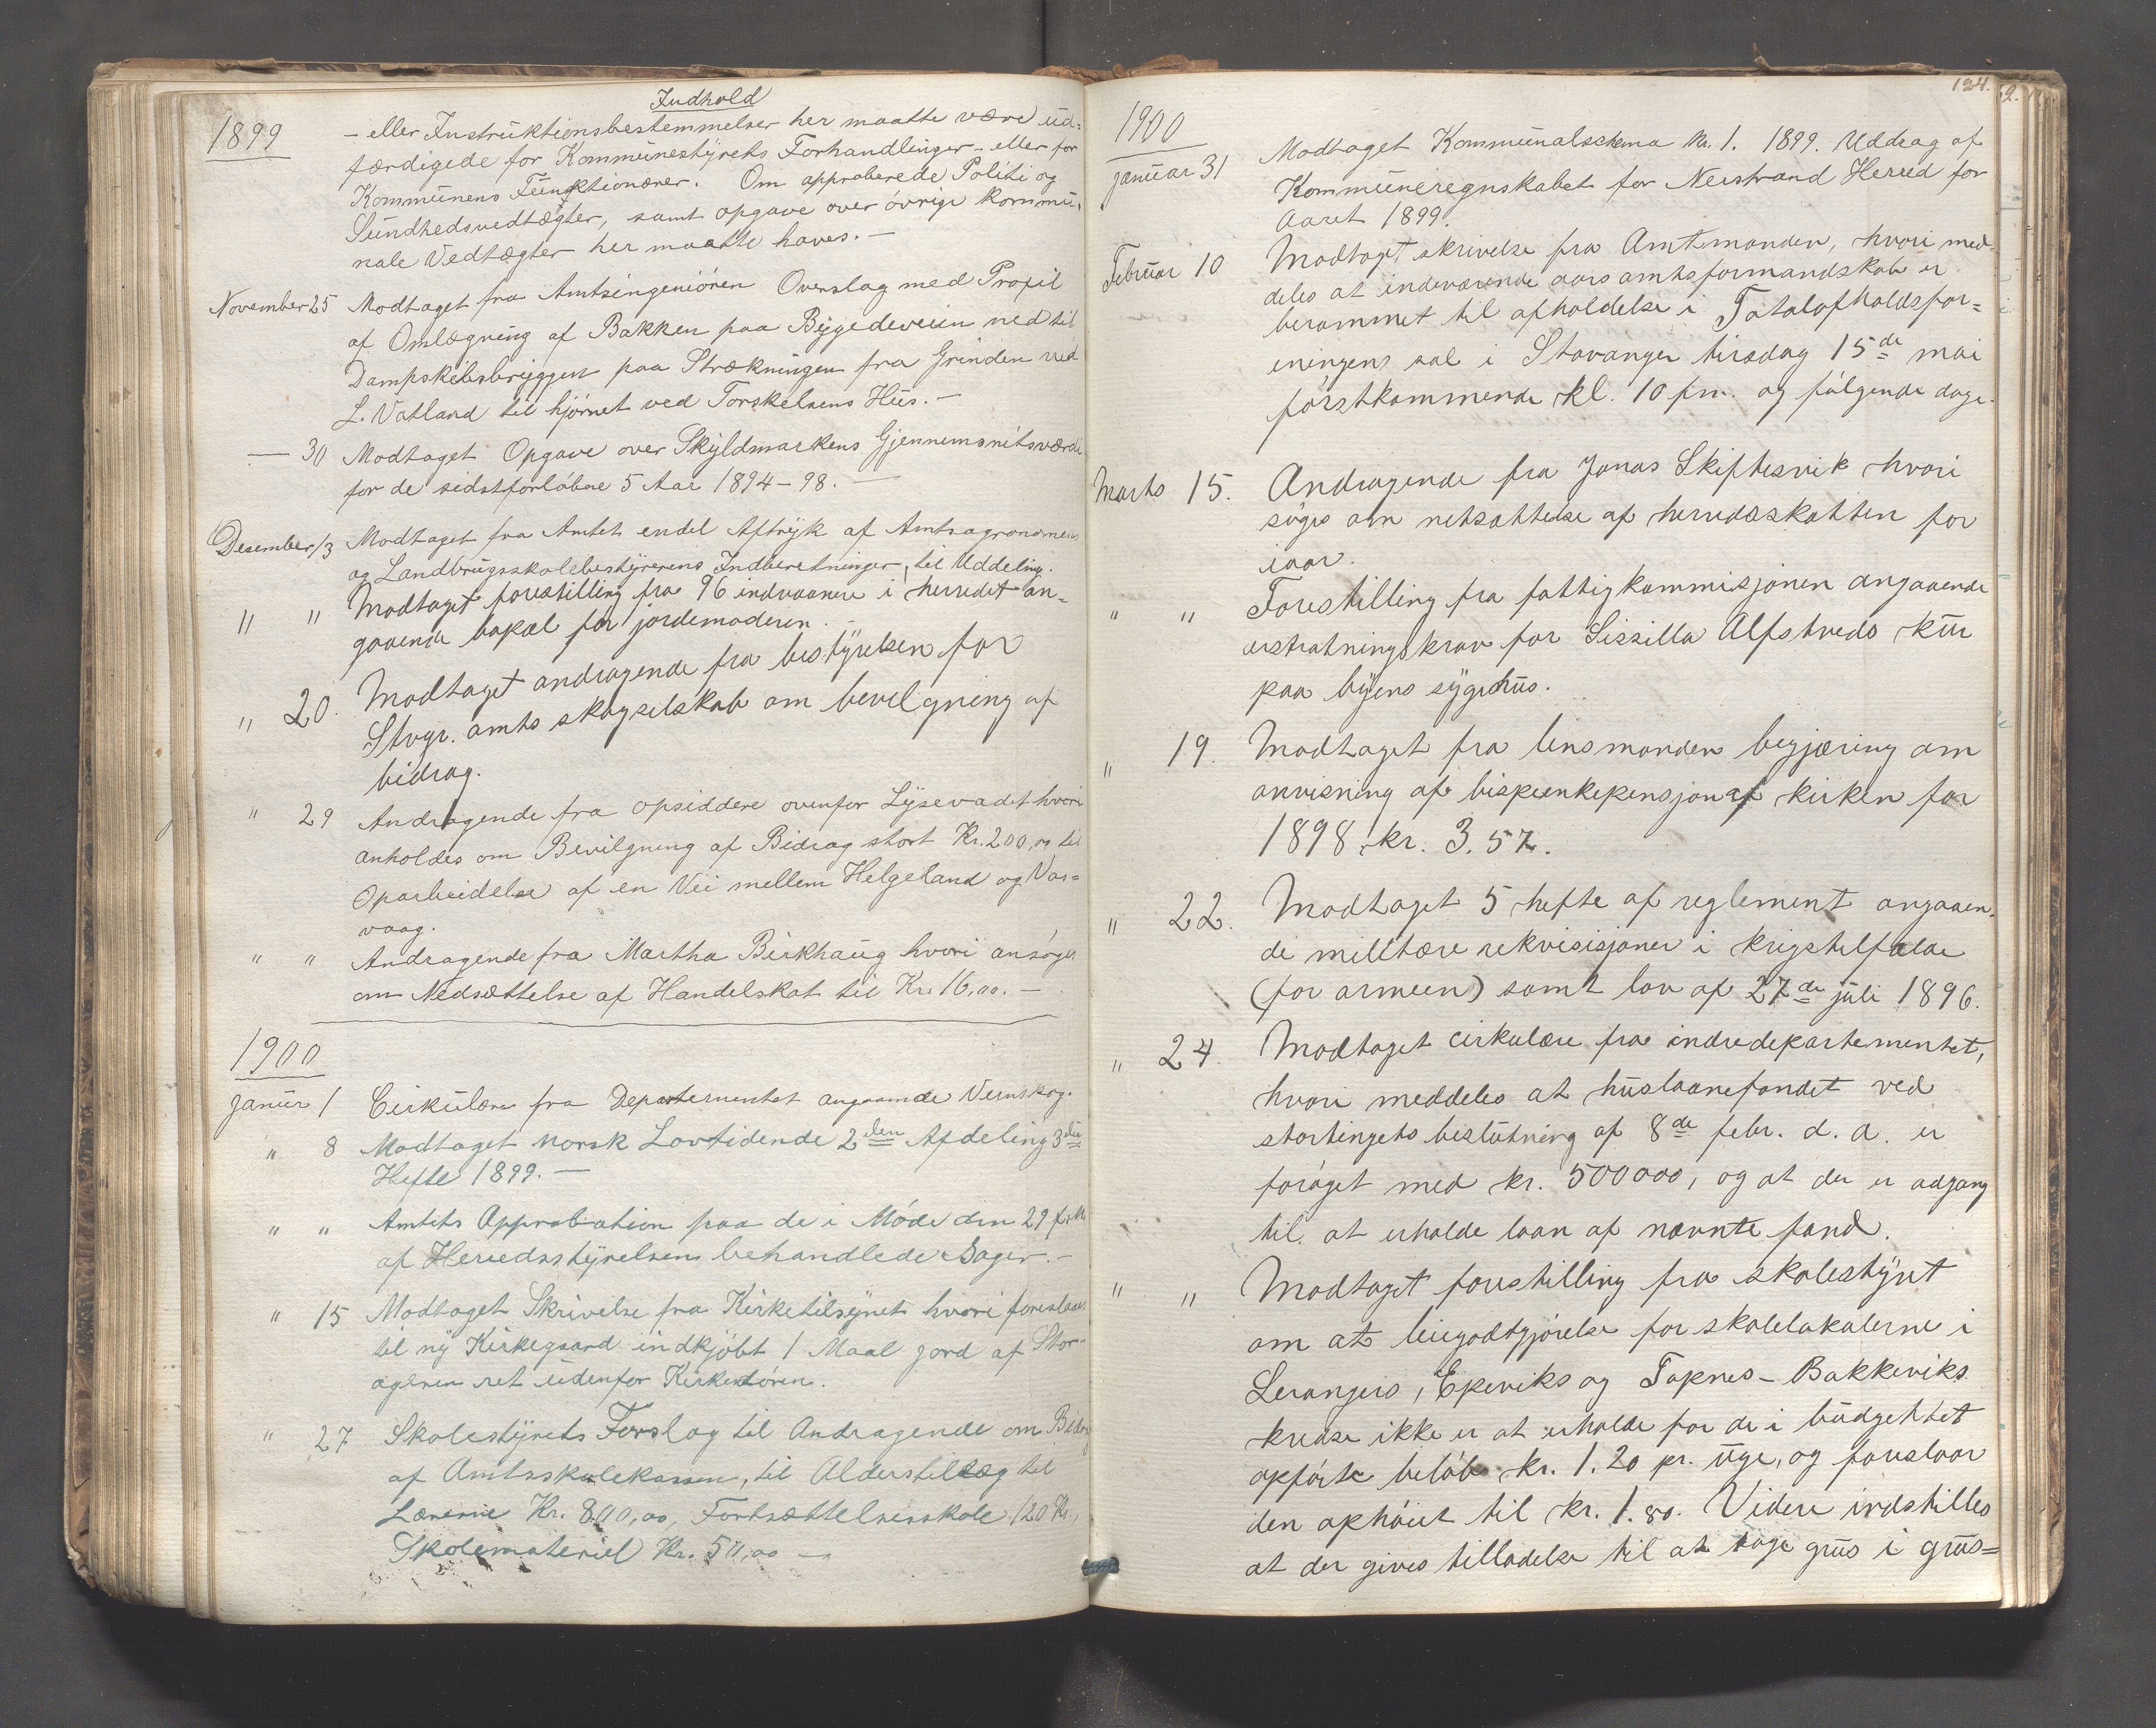 Indhold
1899
- eller Instruktionsbestemmelser her maatte være ud-
færdigede for Kommunestyrets Forhandlinger - eller for
Kommunens Funktionærer. Om approberede Politi og
Sundhedsvedtægter, samt opgave over övrige kommu-
nale Vedtægter her maatte haves. -
November 25 Modtaget fra Amtsingeniören Overslag med Profil
af Omlægning af Bakken paa Bygdeveien ned til
Dampskibsbryggen paa Strækningen fra Grinden ved
L. Vatland til hjörnet ved Torkelsens Hus. -
— 30 Modtaget Opgave over Skyldmarkens Gjennemsnitsværdi
for de sidstforløbne 5 Aar 1894-98. —
Desember 13 Modtaget fra Amtet endel Aftryk af Amtsagronomens
og Landbrugsskolebestyrerens Indberetninger, til Uddeling.
" " Modtaget forestilling fra 96 indvaanere i herredet an-
gaaende bopæl for jordemoderen. -
" 20. Modtaget andragende fra bestyrelsen for
Stvgr. amts skogselskab om bevilgning af
bidrag.
" 29 Andragende fra opsiddere ovenfor Lysevadt hvori
anholdes om Bevilgning af Bidrag stort Kr. 200,00 til
Oparbeidelse af en Vei mellem Helgeland og Vas-
vaag.
" " Andragende fra Martha Birkhaug hvori ansöges
om Nedsættelse af Handelskat til Kr. 16,00. —
1900
Januar 1 Cirkulære fra Departementet angaaende Vernskog.
" 8 Modtaget norsk Lovtidende 2den Afdeling 3die
Hefte 1899. —
" " Amtets Approbation paa de i Möde den 29 f.M.
af Herredsstyrelsens behandlede Sager. -
" 15 Modtaget Skrivelse fra Kirketilsynet hvori foreslaaes
til ny Kirkegaard indkjöbt 1 Maal jord af Stor-
ageren ret udenfor Kirkedören.
" 27 Skolestyrets Forslag til Andragende om Bidrag
af Amtsskolekassen, til Alderstillæg til
Lærerne Kr. 800,00, Fortsættelsesskole 120 Kr.,
Skolemateriel Kr. 50,00 —
124.
1900
Januar 31 Modtaget Kommunalschema No. 1. 1899. Uddrag af
Kommuneregnskabet for Nerstrand Herred for
Aaret 1899.
Februar 10 Modtaget skrivelse fra Amtmanden, hvori med-
deles at indeværende aars amtsformandskab er
berammet til afholdelse i Totalafholdsfor-
eningens sal i Stavanger tirsdag 15de mai
förstkommende kl. 10 fm. og fölgende dage.
Marts 15. Andragende fra Jonas Skiftesvik hvori
söges om netsættelse af herredsskatten for
iaar.
" " Forestilling fra fattigkommisjonen angaaende
erstatningskrav for Sissilla Alfstveds kur
paa byens sygehus.
" 19. Modtaget fra lensmanden begjæring om
anvisning af bispeenkepensjon af kirken for
1898, kr. 3,57.
" 22. Modtaget 5 hefte af reglement angaaen-
de militære rekvisisjoner i krigstilfælde
(for armeen) samt lov af 27de juli 1896.
" 24. Modtaget cirkulære fra indredepartementet,
hvori meddeles at huslaanefondet ved
stortingets beslutning af 8de febr. d. a. er
foröget med kr. 500000, og at der er adgang
til at erholde laan af nævnte fond.
" " Modtaget forestilling fra skolestyret
om at leiegodtgjörelse for skolelokalerne i
Lerangers, Epeviks og Toknes-Bakkeviks
kredse ikke er at erholde for de i budgettet
opförte belöb kr. 1.20 pr. uge, og foreslaar
den ophöiet til kr. 1.80. Videre indstilles
at der gives tilladelse til at tage grus i grus=